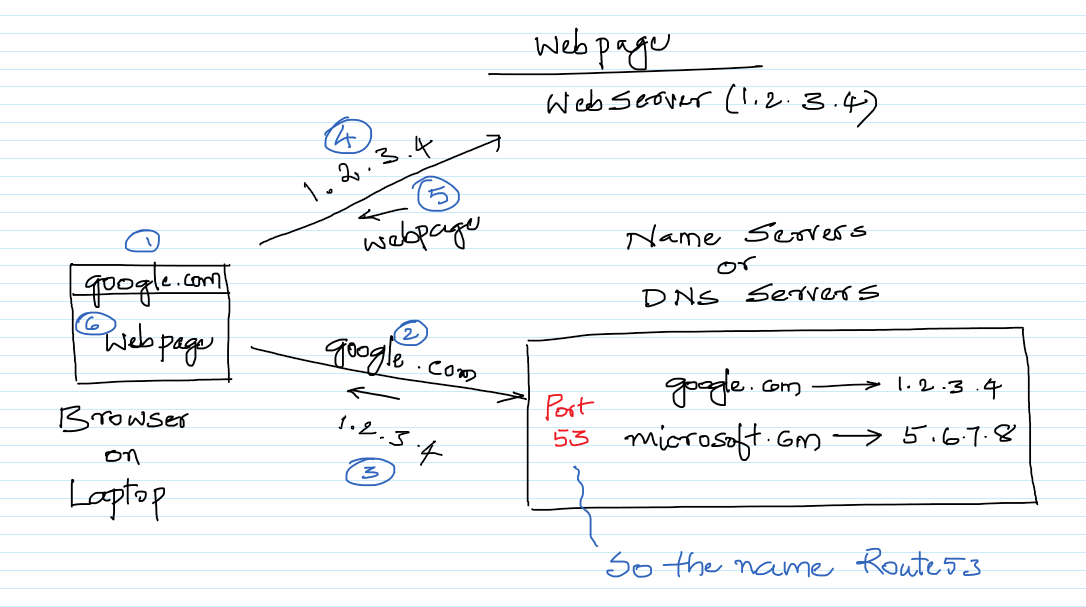 Webpage
Webserver (1.2.3.4)
4
1.2.3.4
5
webpage
1
google.com
6
Webpage
Browser
on
Laptop
2
google.com
1.2.3.4
3
Name Servers
or
DNS Servers
google.com → 1.2.3.4
Port
53
microsoft.com → 5.6.7.8
So the name Route53